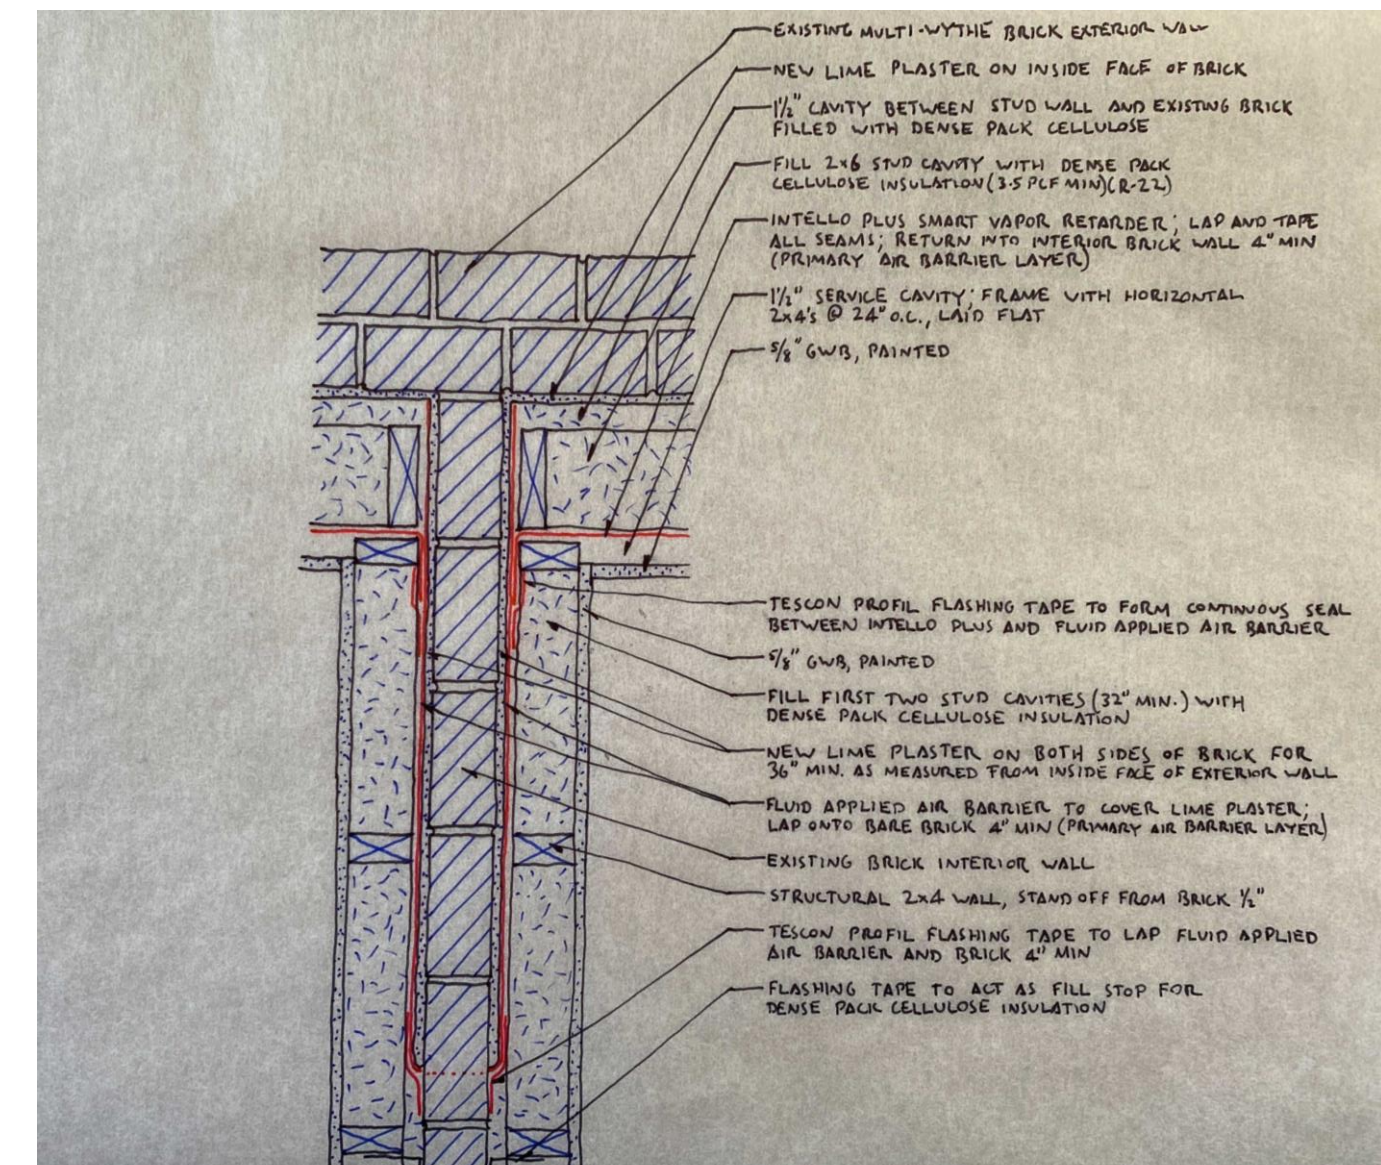 EXISTING MULTI-WYTHE BRICK EXTERIOR WALL
NEW LIME PLASTER ON INSIDE FACE OF BRICK
1½" CAVITY BETWEEN STUD WALL AND EXISTING BRICK
FILLED WITH DENSE PACK CELLULOSE
FILL 2x6 STUD CAVITY WITH DENSE PACK
CELLULOSE INSULATION (3.5 PCF MIN)(R-22)
INTELLO PLUS SMART VAPOR RETARDER; LAP AND TAPE
ALL SEAMS; RETURN INTO INTERIOR BRICK WALL 4" MIN
(PRIMARY AIR BARRIER LAYER)
1½" SERVICE CAVITY; FRAME WITH HORIZONTAL
2x4's @ 24" O.C., LAID FLAT
5/8" GWB, PAINTED
TESCON PROFIL FLASHING TAPE TO FORM CONTINUOUS SEAL
BETWEEN INTELLO PLUS AND FLUID APPLIED AIR BARRIER
5/8" GWB, PAINTED
FILL FIRST TWO STUD CAVITIES (32" MIN.) WITH
DENSE PACK CELLULOSE INSULATION
NEW LIME PLASTER ON BOTH SIDES OF BRICK FOR
36" MIN. AS MEASURED FROM INSIDE FACE OF EXTERIOR WALL
FLUID APPLIED AIR BARRIER TO COVER LIME PLASTER;
LAP ONTO BARE BRICK 4" MIN (PRIMARY AIR BARRIER LAYER)
EXISTING BRICK INTERIOR WALL
STRUCTURAL 2x4 WALL, STAND OFF FROM BRICK ½"
TESCON PROFIL FLASHING TAPE TO LAP FLUID APPLIED
AIR BARRIER AND BRICK 4" MIN
FLASHING TAPE TO ACT AS FILL STOP FOR
DENSE PACK CELLULOSE INSULATION